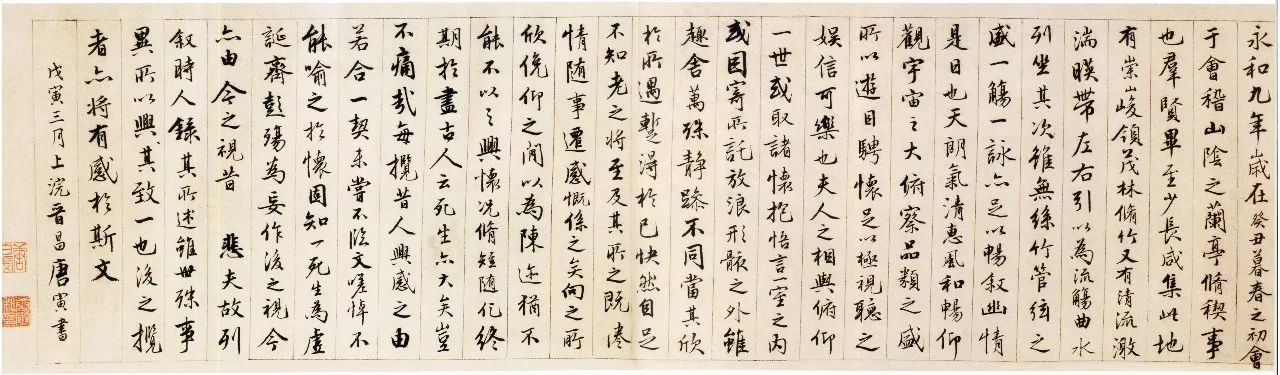 永和九年歲在癸丑暮春之初會
于會稽山陰之蘭亭脩稧事
也群賢畢至少長咸集此地
有崇山峻領茂林脩竹又有清流激
湍暎帶左右引以為流觴曲水
列坐其次雖無絲竹管弦之
盛一觴一詠亦足以暢叙幽情
是日也天朗氣清惠風和暢仰
觀宇宙之大俯察品類之盛
所以遊目騁懷足以極視聽之
娛信可樂也夫人之相與俯仰
一世或取諸懷抱悟言一室之內
或因寄所託放浪形骸之外雖
趣舍萬殊靜躁不同當其欣
於所遇暫得於己快然自足
不知老之將至及其所之既倦
情隨事遷感慨係之矣向之所
欣俛仰之間以為陳迹猶不
能不以之興懷況脩短隨化終
期於盡古人云死生亦大矣豈
不痛哉每攬昔人興感之由
若合一契未嘗不臨文嗟悼不
能喻之於懷固知一死生為虛
誕齊彭殤為妄作後之視今
亦由今之視昔 悲夫故列
叙時人錄其所述雖世殊事
異所以興其致一也後之攬
者亦將有感於斯文
戊寅三月上浣晉昌唐寅書